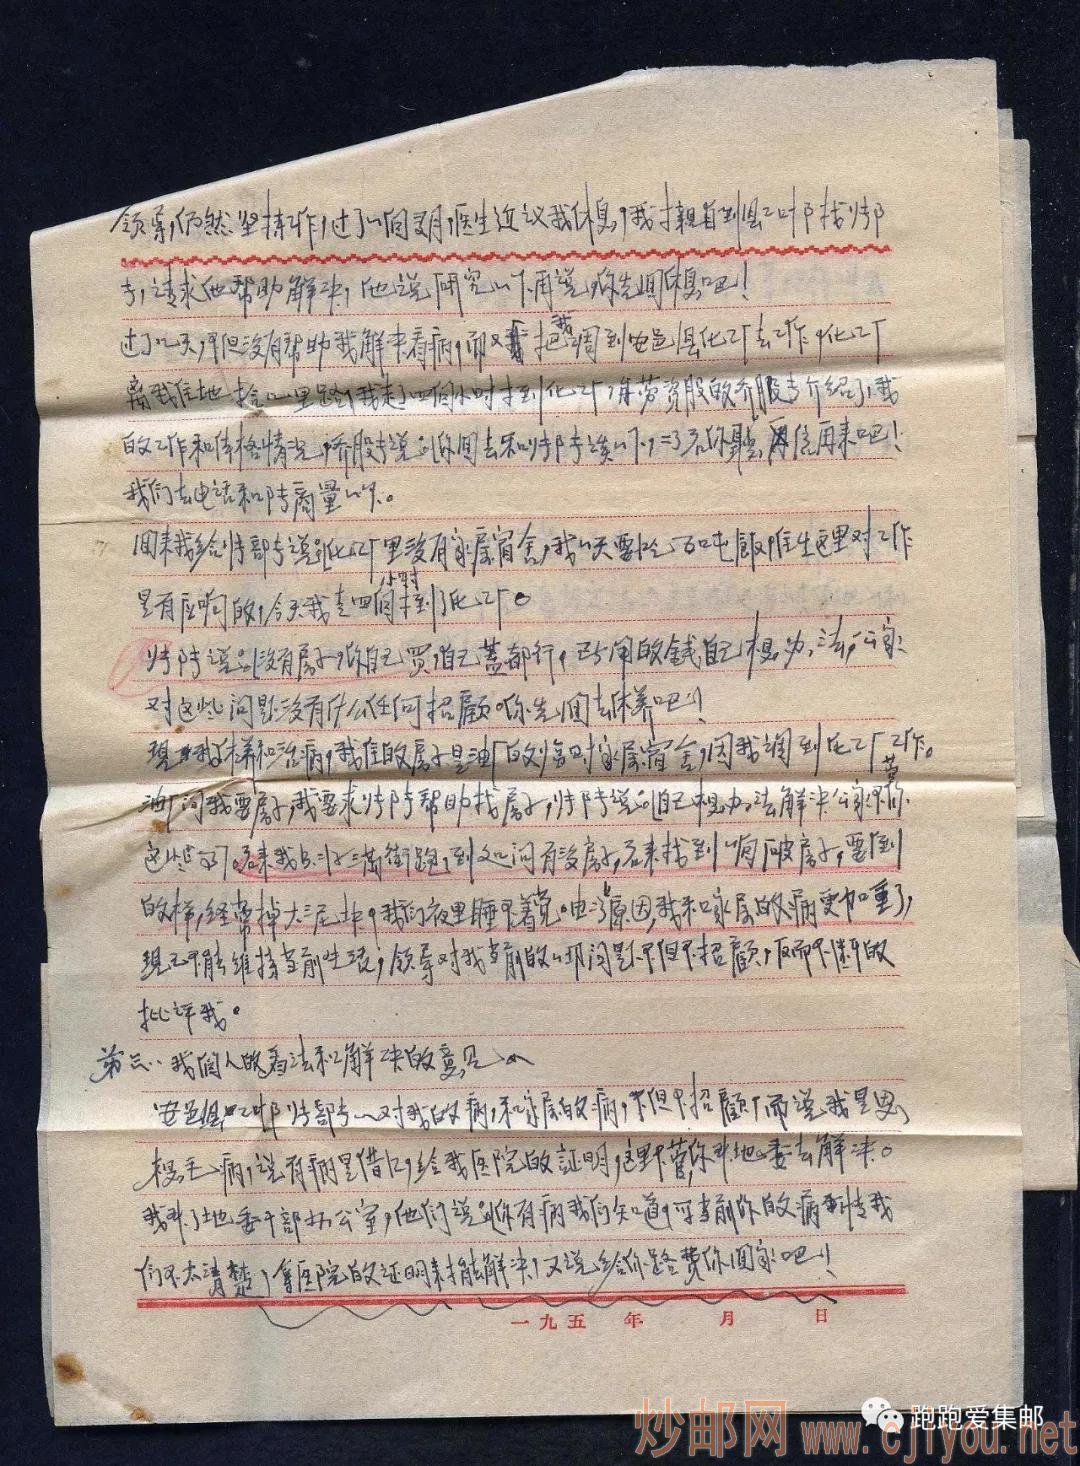 领导,仍然坚持工作,过了一个多月,医生建议我休息,我才亲自到县工业部找
请求他帮助解决,他说研究一下再说,你先回休息吧!
过了几天,不但没有帮助我解决看病,而又把我调到安邑县化工厂去工作,化工厂
离我住地 里路,我走了四个小时才到化工厂,
的工作和体格情况,乔股长说:你回去和 谈一下, 再来吧!
我们去电话和 商量一下。
回来我给 部长说:化工厂里没有家属宿舍,我一天要吃 饭,住在这里对工作
是有应响的,今天我走四个小时才到了化工厂。
说:没有房子,你自己买,自己盖都行,所用的钱自己想办法,公家
对这些问题没有什么任何招顾。你先回去休养吧!
现 养和治病,我住的房子是油厂的 家属宿舍,因我调到化工厂工作。
油厂问我要房子,我要求 帮助找房子, 说:自己想办法解决,公家不管你
这些 后来我 满街跑,到处问有没房子,后来找到一间破房子,要倒
的样,经常掉大 我们夜里睡不着觉。由于 原因,我和家属的病更加重了,
现已不能维持当前生活,领导对我当前的一切问题不但不招顾,反而不断的
批评我。
第三:我个人的看法和解决的意见
安邑县工业部 部长 对我的病,和家属的病,不但不招顾,而说我是思
想毛病,说有病是借口,给我医院的证明,这里不管,你 地委去解决。
我 了地委干部办公室,他们说:你有病我们知道, 当前你的病 情我
们不太清楚,拿医院的证明来才能解决,又说给你路费你回家吧!
一九五 年 月 日
跑跑爱集邮
炒邮网 www.cjiyou.net